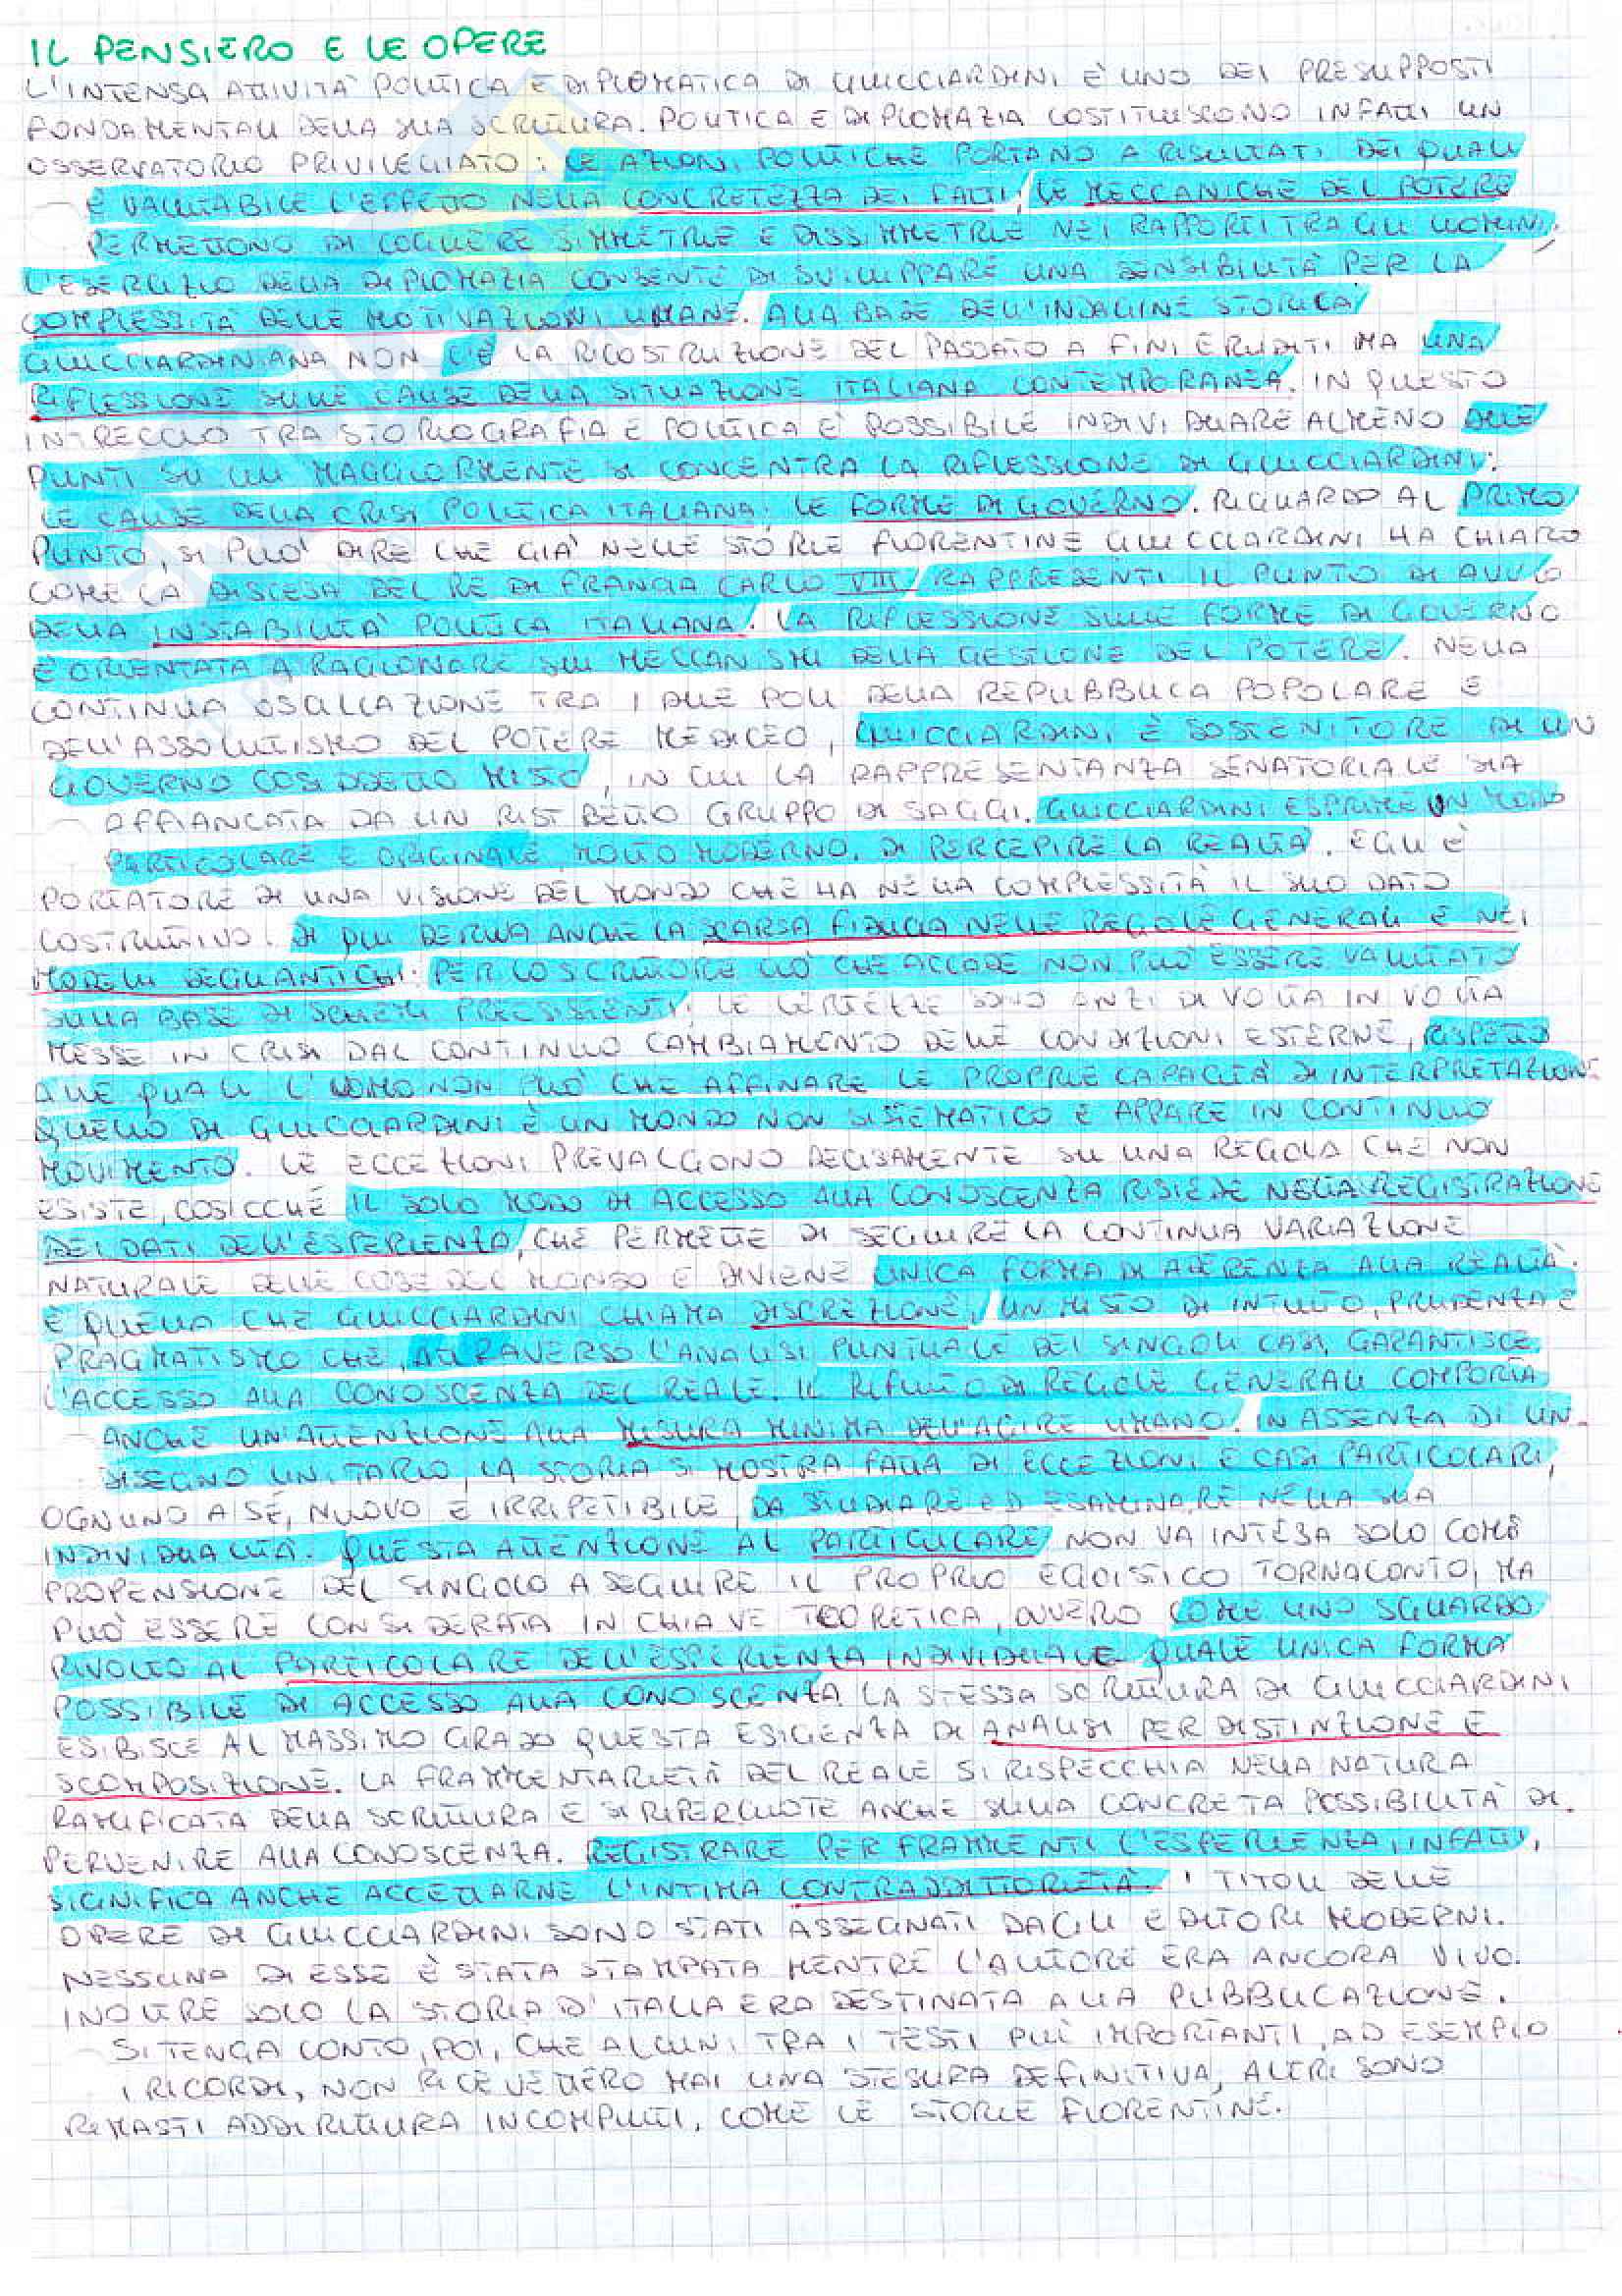 IL PENSIERO E LE OPERE
L'INTENSA ATTIVITÀ POLITICA E DIPLOMATICA DI GUICCIARDINI È UNO DEI PRESUPPOSTI
FONDAMENTALI DELLA SUA SCRITTURA. POLITICA E DIPLOMAZIA COSTITUISCONO INFATTI UN
OSSERVATORIO PRIVILEGIATO: LE AZIONI POLITICHE PORTANO A RISULTATI DEI QUALI
È VALUTABILE L'EFFETTO NELLA CONCRETEZZA DEI FATTI; LE MECCANICHE DEL POTERE
PERMETTONO DI COGLIERE SIMMETRIE E DISSIMMETRIE NEI RAPPORTI TRA GLI UOMINI;
L'ESERCIZIO DELLA DIPLOMAZIA CONSENTE DI SVILUPPARE UNA SENSIBILITÀ PER LA
COMPLESSITÀ DELLE MOTIVAZIONI UMANE. ALLA BASE DELL'INDAGINE STORICA
GUICCIARDINIANA NON C'È LA RICOSTRUZIONE DEL PASSATO A FINI ERUDITI MA UNA
RIFLESSIONE SULLE CAUSE DELLA SITUAZIONE ITALIANA CONTEMPORANEA. IN QUESTO
INTRECCIO TRA STORIOGRAFIA E POLITICA È POSSIBILE INDIVIDUARE ALMENO DUE
PUNTI SU CUI MAGGIORMENTE SI CONCENTRA LA RIFLESSIONE DI GUICCIARDINI:
LE CAUSE DELLA CRISI POLITICA ITALIANA; LE FORME DI GOVERNO. RIGUARDO AL PRIMO
PUNTO, SI PUÒ DIRE CHE GIÀ NELLE STORIE FIORENTINE GUICCIARDINI HA CHIARO
COME LA DISCESA DEL RE DI FRANCIA CARLO VIII RAPPRESENTI IL PUNTO DI AVVIO
DELLA INSTABILITÀ POLITICA ITALIANA. LA RIFLESSIONE SULLE FORME DI GOVERNO
È ORIENTATA A RAGIONARE SUI MECCANISMI DELLA GESTIONE DEL POTERE. NELLA
CONTINUA OSCILLAZIONE TRA I DUE POLI DELLA REPUBBLICA POPOLARE E
DELL'ASSOLUTISMO DEL POTERE MEDICEO, GUICCIARDINI È SOSTENITORE DI UN
GOVERNO COSIDDETTO MISTO, IN CUI LA RAPPRESENTANZA SENATORIALE SIA
AFFIANCATA DA UN RISTRETTO GRUPPO DI SAGGI. GUICCIARDINI ESPRIME UN MODO
PARTICOLARE E ORIGINALE, MOLTO MODERNO, DI PERCEPIRE LA REALTÀ. EGLI È
PORTATORE DI UNA VISIONE DEL MONDO CHE HA NELLA COMPLESSITÀ IL SUO DATO
COSTRUTTIVO. DI QUI DERIVA ANCHE LA SCARSA FIDUCIA NELLE REGOLE GENERALI E NEI
MODELLI DEGLI ANTICHI: PER LO SCRITTORE CIÒ CHE ACCADE NON PUÒ ESSERE VALUTATO
SULLA BASE DI SCHEMI PREESISTENTI; LE CERTEZZE SONO ANZI DI VOLTA IN VOLTA
MESSE IN CRISI DAL CONTINUO CAMBIAMENTO DELLE CONDIZIONI ESTERNE, RISPETTO
ALLE QUALI L'UOMO NON PUÒ CHE AFFINARE LE PROPRIE CAPACITÀ DI INTERPRETAZIONE
QUELLO DI GUICCIARDINI È UN MONDO NON SISTEMATICO E APPARE IN CONTINUO
MOVIMENTO. LE ECCEZIONI PREVALGONO DECISAMENTE SU UNA REGOLA CHE NON
ESISTE, COSICCHÉ IL SOLO MODO DI ACCESSO ALLA CONOSCENZA RISIEDE NELLA REGISTRAZIONE
DEI DATI DELL'ESPERIENZA, CHE PERMETTE DI SEGUIRE LA CONTINUA VARIAZIONE
NATURALE DELLE COSE DEL MONDO E DIVIENE UNICA FORMA DI ADERENZA ALLA REALTÀ.
È QUELLA CHE GUICCIARDINI CHIAMA DISCREZIONE, UN MISTO DI INTUITO, PRUDENZA E
PRAGMATISMO CHE, ATTRAVERSO L'ANALISI PUNTUALE DEI SINGOLI CASI, GARANTISCE
L'ACCESSO ALLA CONOSCENZA DEL REALE. IL RIFIUTO DI REGOLE GENERALI COMPORTA
ANCHE UN'ATTENZIONE ALLA MISURA MINIMA DELL'AGIRE UMANO. IN ASSENZA DI UN
DISEGNO UNITARIO, LA STORIA SI MOSTRA FATTA DI ECCEZIONI E CASI PARTICOLARI,
OGNUNO A SÉ, NUOVO E IRRIPETIBILE, DA STUDIARE ED ESAMINARE NELLA SUA
INDIVIDUALITÀ. QUESTA ATTENZIONE AL PARTICULARE NON VA INTESA SOLO COME
PROPENSIONE DEL SINGOLO A SEGUIRE IL PROPRIO EGOISTICO TORNACONTO, MA
PUÒ ESSERE CONSIDERATA IN CHIAVE TEORETICA, OVVERO COME UNO SGUARDO
RIVOLTO AL PARTICOLARE DELL'ESPERIENZA INDIVIDUALE QUALE UNICA FORMA
POSSIBILE DI ACCESSO ALLA CONOSCENZA. LA STESSA SCRITTURA DI GUICCIARDINI
ESIBISCE AL MASSIMO GRADO QUESTA ESIGENZA DI ANALISI PER DISTINZIONE E
SCOMPOSIZIONE. LA FRAMMENTARIETÀ DEL REALE SI RISPECCHIA NELLA NATURA
RAMIFICATA DELLA SCRITTURA E SI RIPERCUOTE ANCHE SULLA CONCRETA POSSIBILITÀ DI
PERVENIRE ALLA CONOSCENZA. REGISTRARE PER FRAMMENTI L'ESPERIENZA, INFATTI,
SIGNIFICA ANCHE ACCETTARNE L'INTIMA CONTRADDITTORIETÀ. I TITOLI DELLE
OPERE DI GUICCIARDINI SONO STATI ASSEGNATI DAGLI EDITORI MODERNI.
NESSUNA DI ESSE È STATA STAMPATA MENTRE L'AUTORE ERA ANCORA VIVO.
INOLTRE SOLO LA STORIA D'ITALIA ERA DESTINATA ALLA PUBBLICAZIONE.
SI TENGA CONTO, POI, CHE ALCUNI TRA I TESTI PIÙ IMPORTANTI, AD ESEMPIO
I RICORDI, NON RICEVETTERO MAI UNA STESURA DEFINITIVA, ALTRI SONO
RIMASTI ADDIRITTURA INCOMPIUTI, COME LE STORIE FIORENTINE.